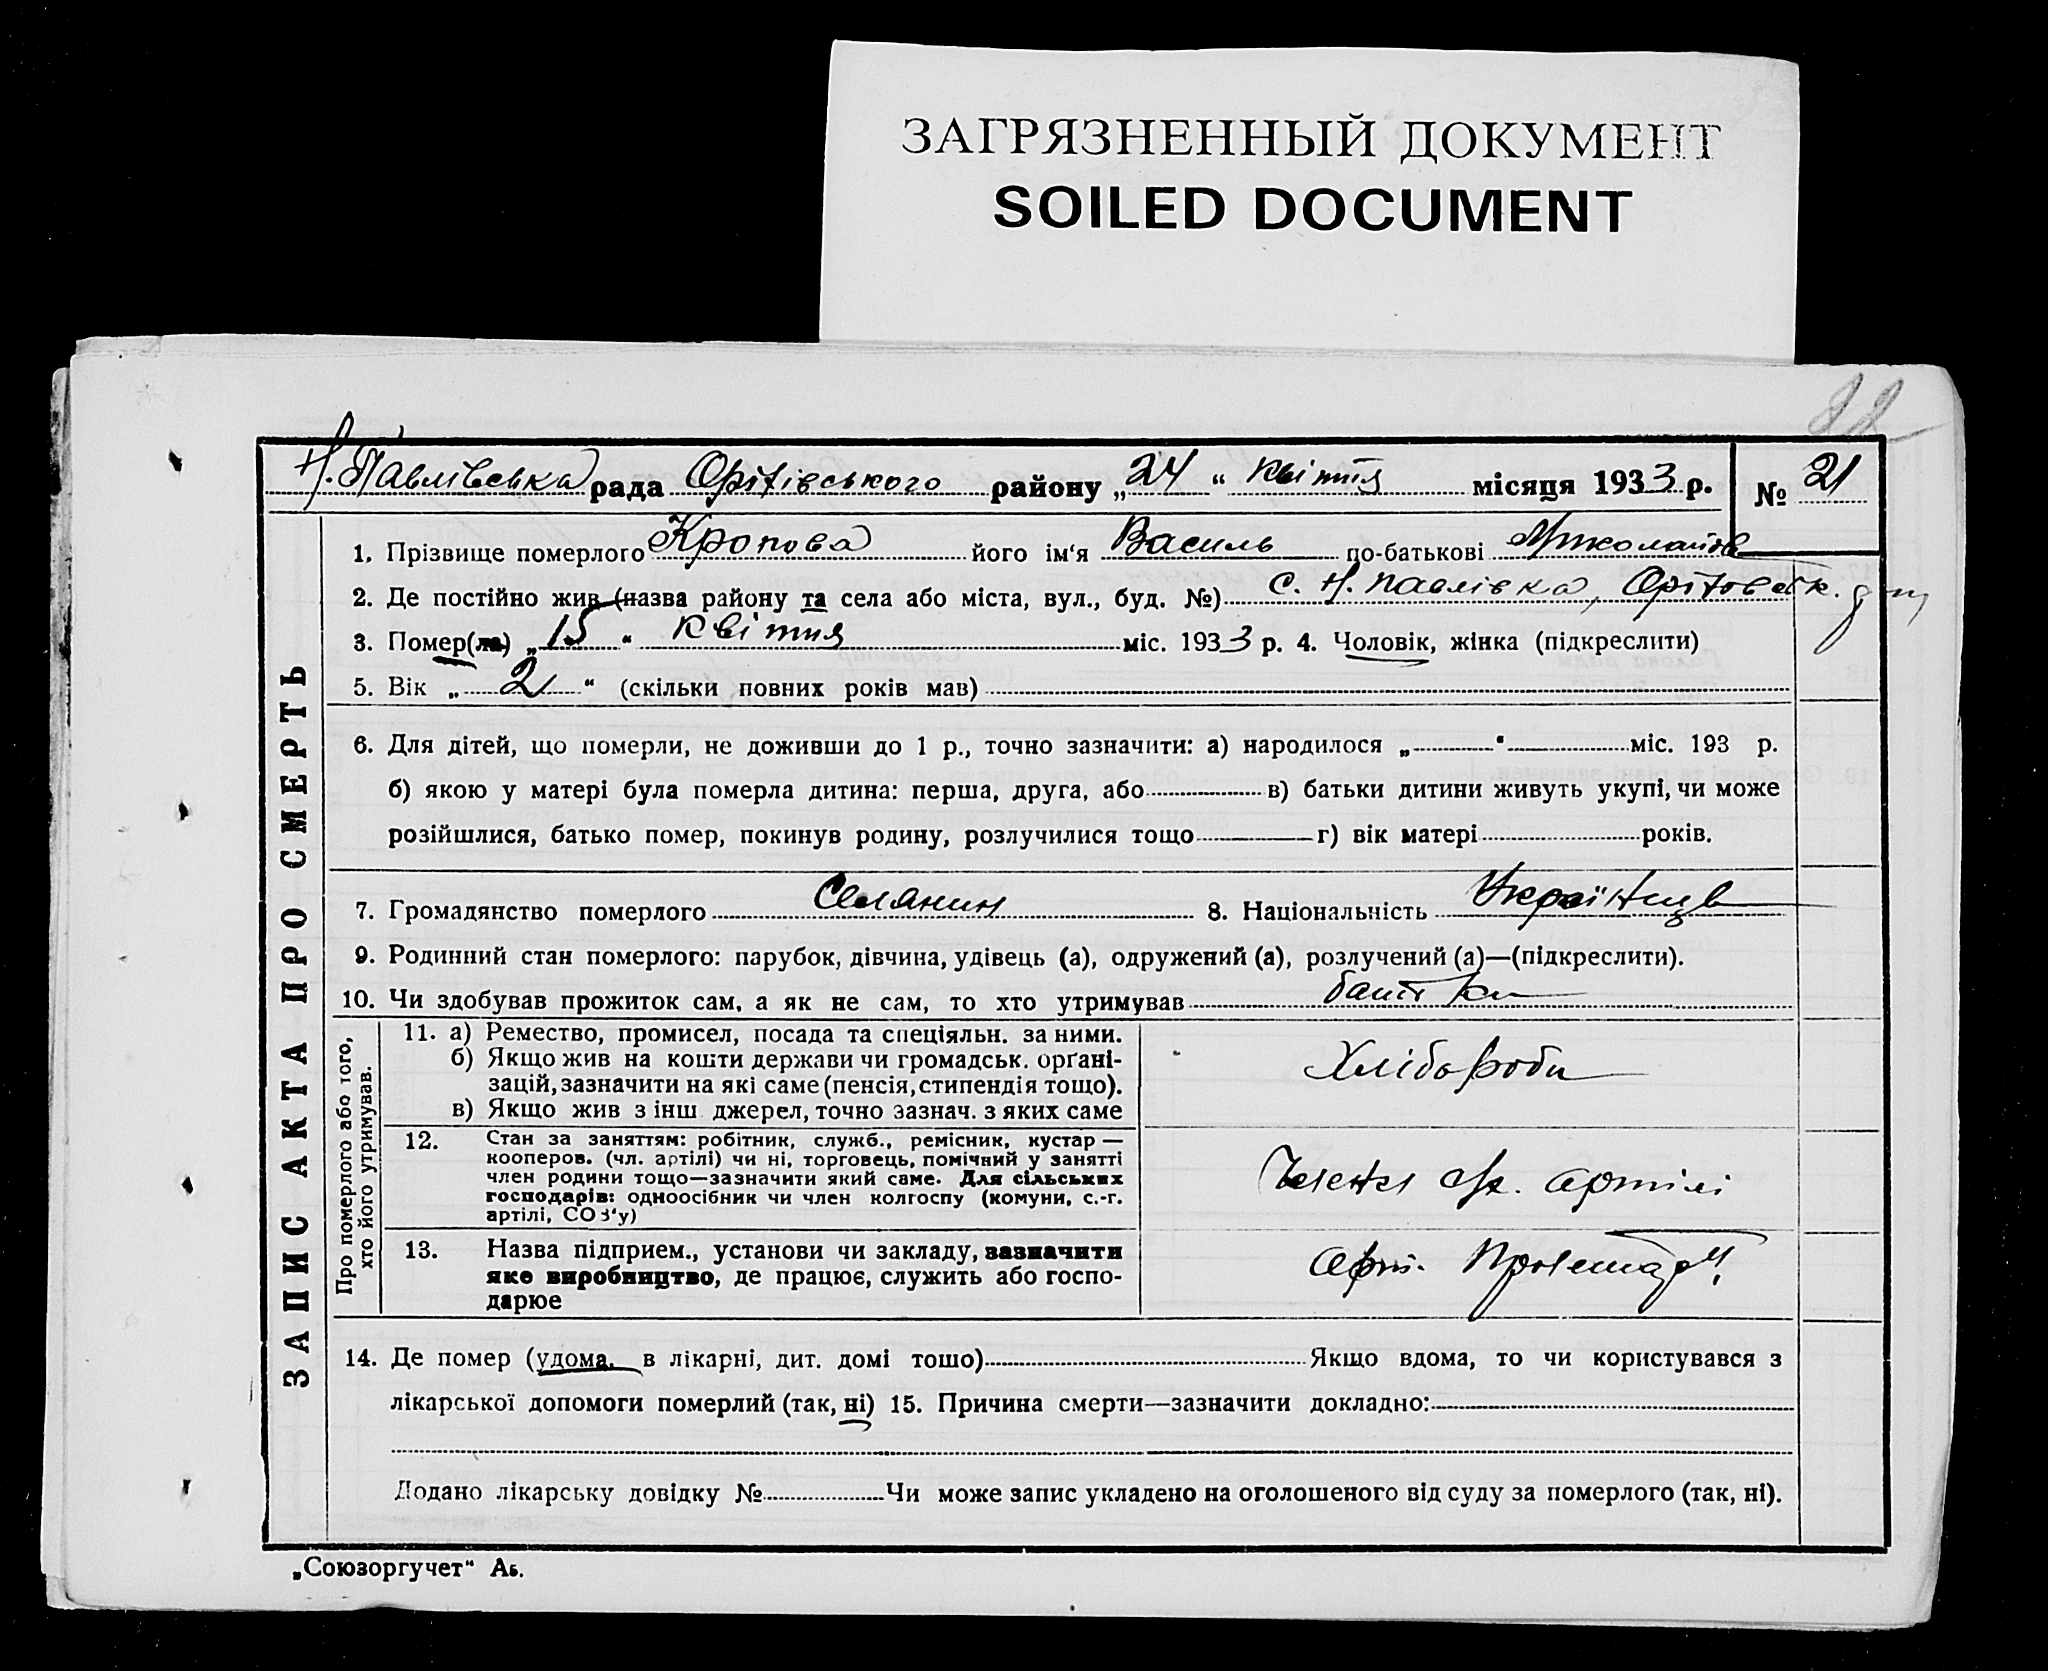 ЗАГРЯЗНЕННЫЙ ДОКУМЕНТ
SOILED DOCUMENT
Н.Павлівська рада Оріхівського району „24“ квітня місяця 1933 р. № 21
1. Прізвище померлого Кропова його ім‘я Василь по-батькові Миколайов
2. Де постійно жив (назва району та села або міста, вул., буд. №) с. Н. Павлівка,
3. Помер(ла) „15“ квітня міс. 1933 р. 4. Чоловік, жінка (підкреслити)
5. Вік „2“ (скільки повних років мав)
6. Для дітей, що померли, не доживши до 1 р., точно зазначити: а) народилося „ “ міс. 193 р.
б) якою у матері була померла дитина: перша, друга, або в) батьки дитини живуть укупі, чи може
розійшлися, батько помер, покинув родину, розлучилися тощо г) вік матері років.
7. Громадянство померлого Селянин 8. Національність Українець
9. Родинний стан померлого: парубок, дівчина, удівець (а), одружений (а), розлучений (а)—(підкреслити).
10. Чи здобував прожиток сам, а як не сам, то хто утримував батьки
ЗАПИС АКТА ПРО СМЕРТЬ
Про померлого або того,
хто його утримував.
11. а) Ремество, промисел, посада та спеціяльн. за ними.
б) Якщо жив на кошти держави чи громадськ. орґані-
зацій, зазначити на які саме (пенсія, стипендія тощо).
в) Якщо жив з інш джерел, точно зазнач. з яких саме
Хлібороби
12. Стан за заняттям: робітник, служб., ремісник, кустар —
кооперов. (чл. артілі) чи ні, торговець, помічний у занятті
член родини тощо—зазначити який саме. Для сільських
господарів: одноосібник чи член колгоспу (комуни, с.-г.
артілі, СОЗ‘у)
Члени с/г. артілі
13. Назва підприєм., установи чи закладу, зазначити
яке виробництво, де працює, служить або госпо-
дарює
арт.
14. Де помер (удома, в лікарні, дит. домі тощо) Якщо вдома, то чи користувався з
лікарської допомоги померлий (так, ні) 15. Причина смерти—зазначити докладно:
Додано лікарську довідку № Чи може запис укладено на оголошеного від суду за померлого (так, ні).
„Союзоргучет“ Аб.